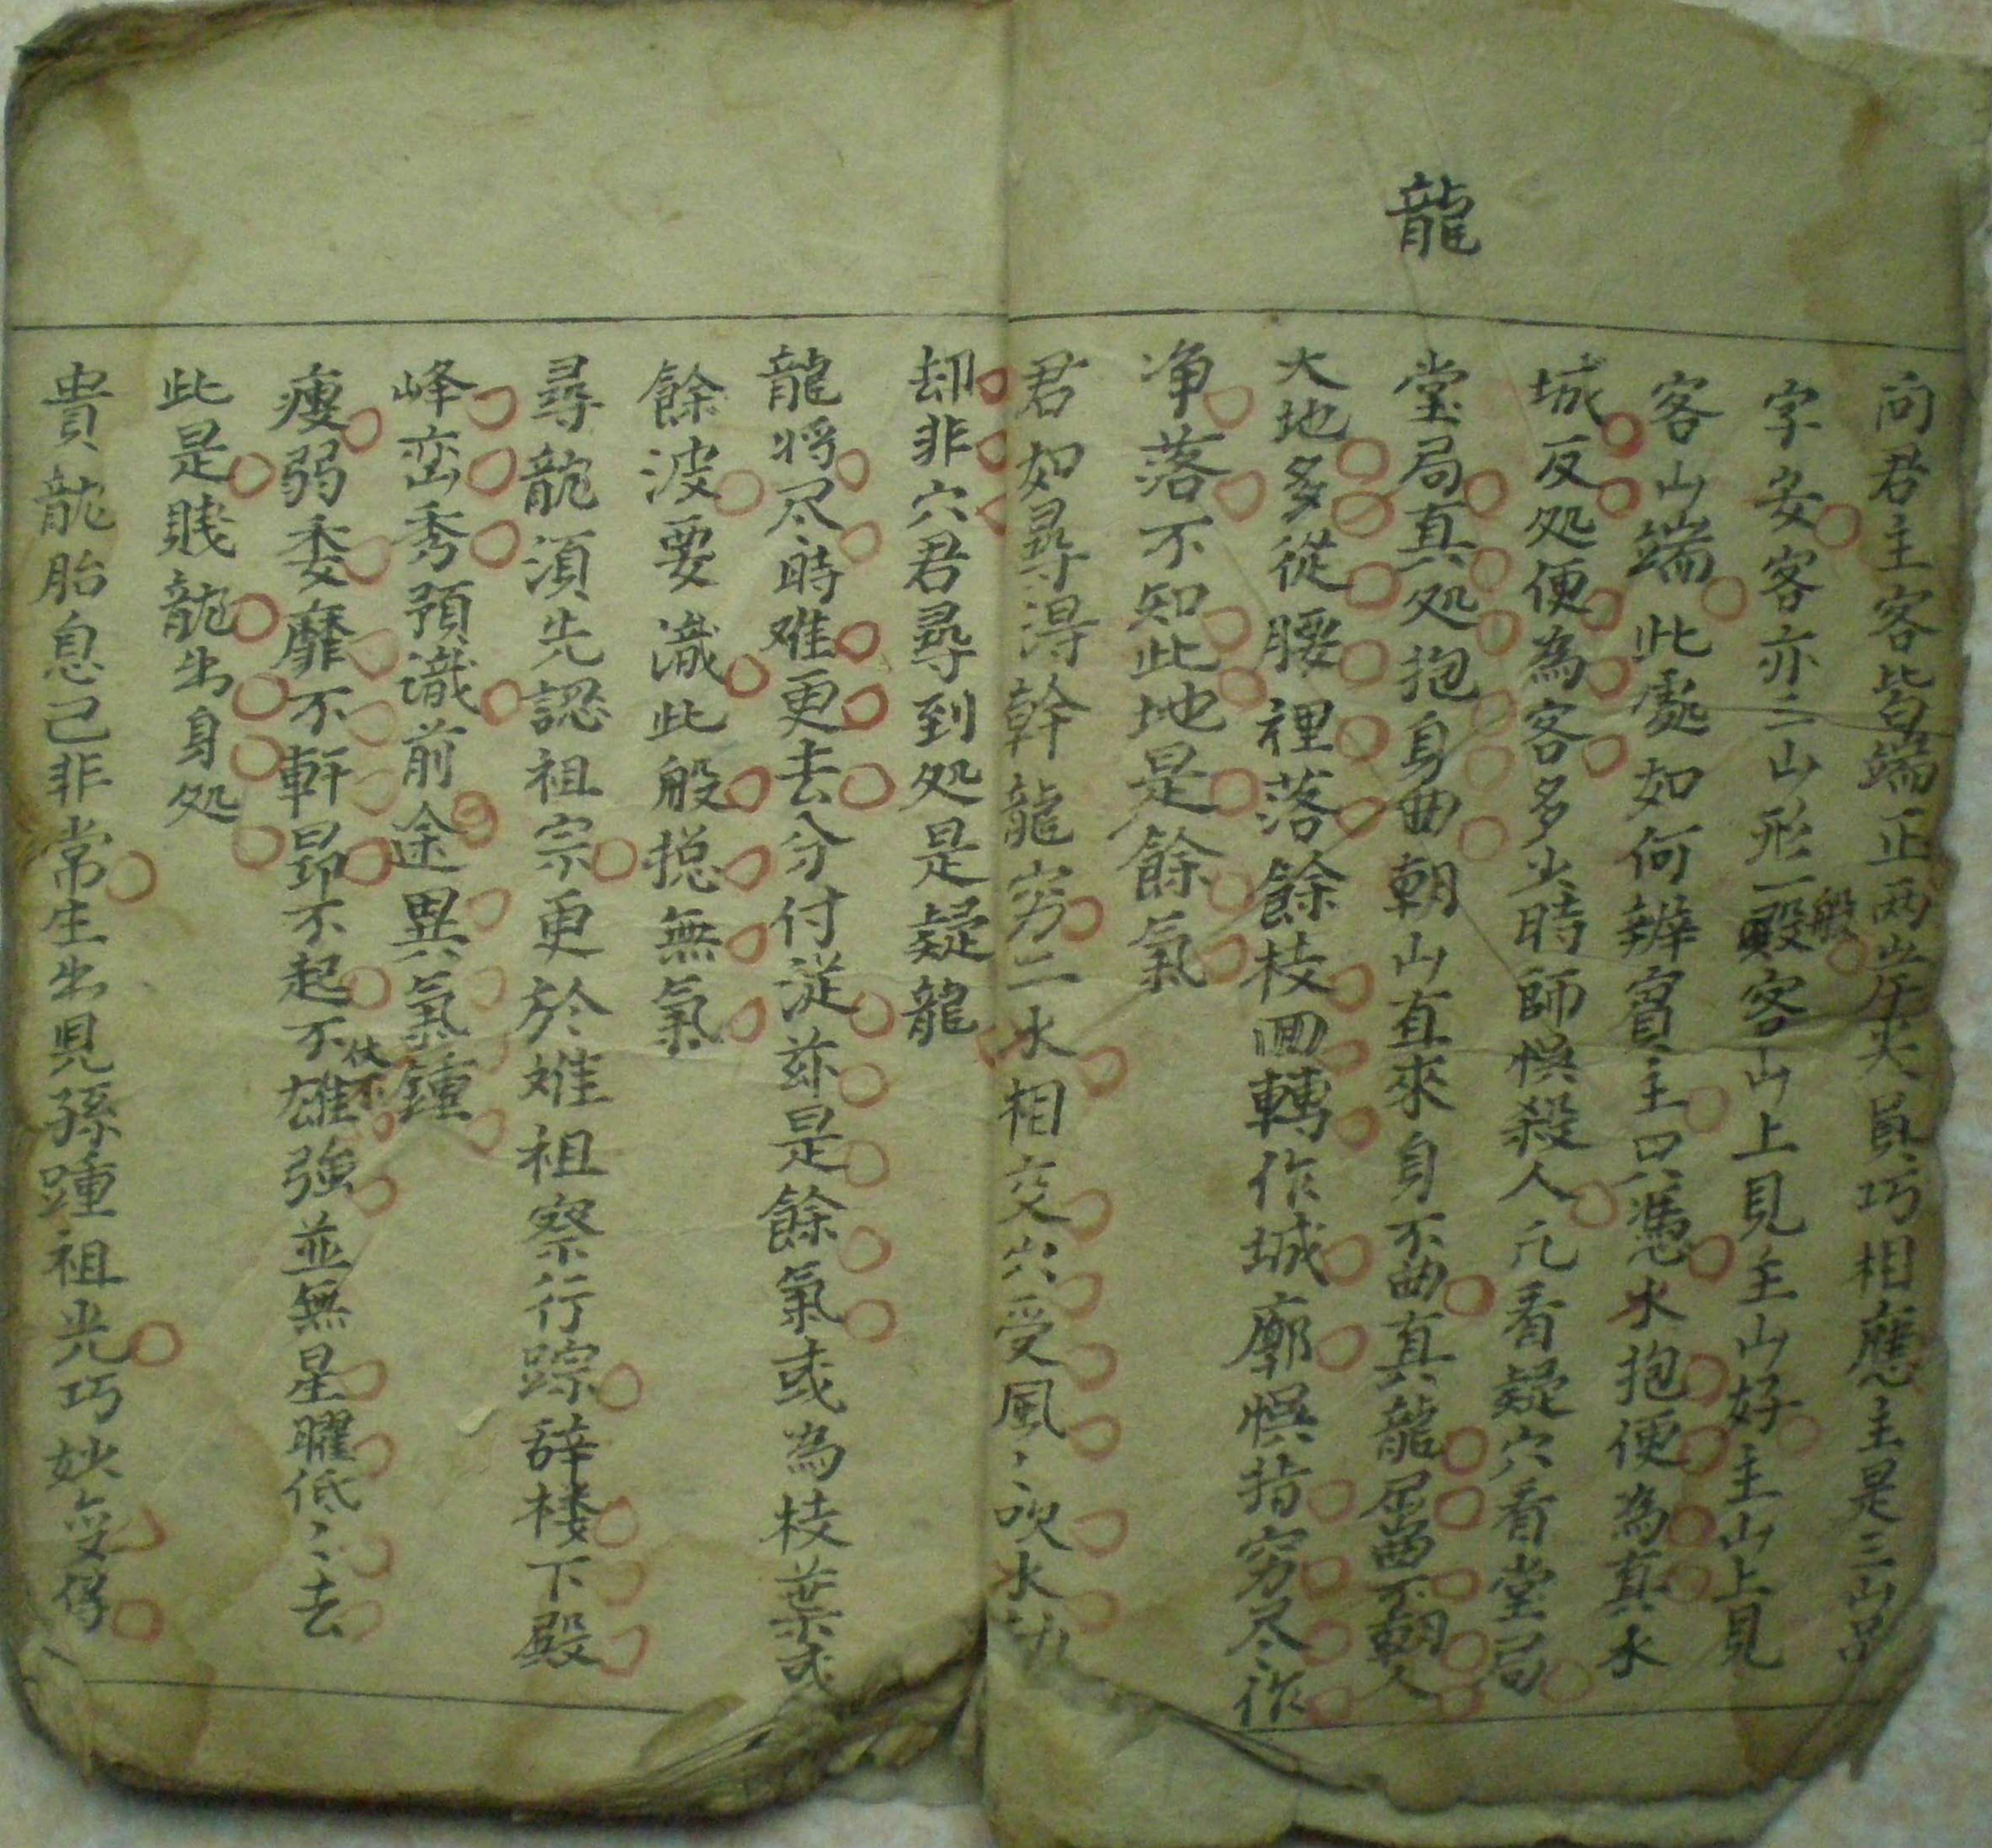 龍
問君主客皆端正两岸夹員巧相應主是三山品
字安客亦三山形一般客山上見主山好主山上見
客山端此處如何辨賓主只憑水抱便為真水
城反処便為客多少時師悞殺人凢看疑穴看堂局
堂局真処抱身曲朝山直來身不曲真龍屈曲不朝人
大地多從腰裡落餘枝囬轉作城廓悞指穷尽作
净落不知此地是餘氣
君如尋淂幹龍穷二水相交穴受風〻吹水刼
却非穴君尋到処是疑龍
龍将尽時难更去分付從兹是餘氣或為枝葉或
餘波要識此般揔無氣
尋龍湏先認祖宗更於难祖察行踪辞楼下殿
峰峦秀預識前途異氣鍾
瘦弱委靡不軒昂不起不伏不雄強並無星曜低〻去
此是賎龍出身処
貴龍胎息已非常生出児孫踵祖光巧妙